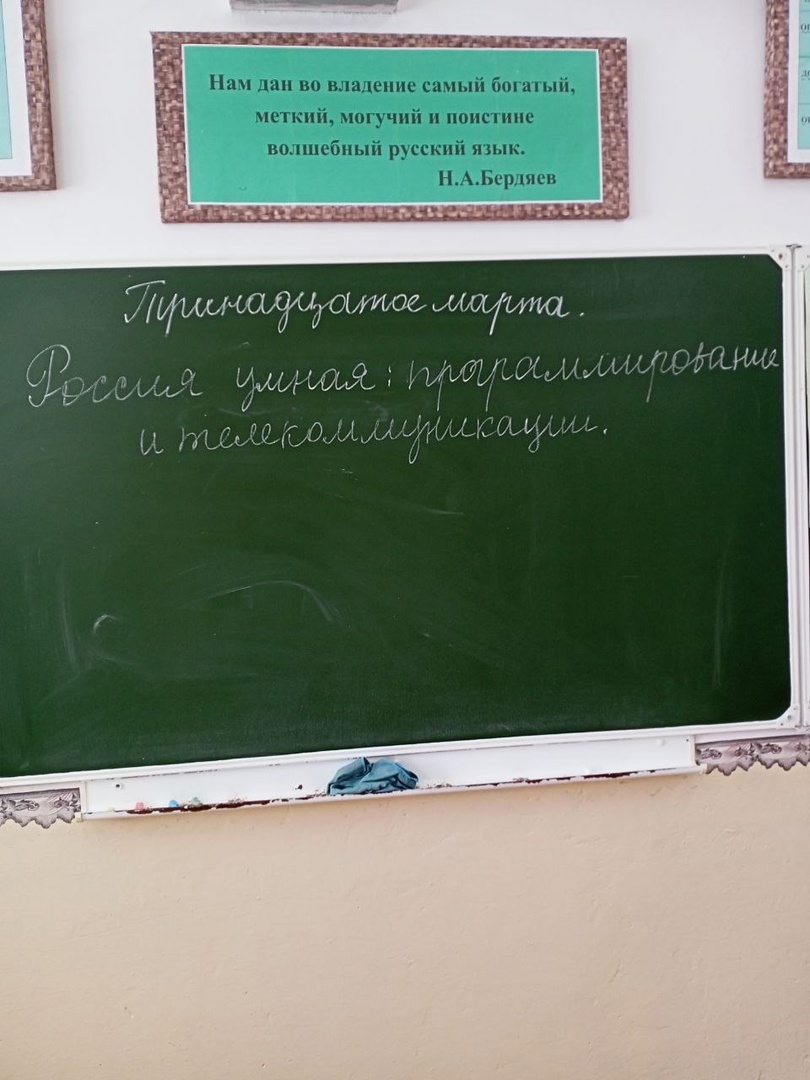 Нам дан во владение самый богатый,
меткий, могучий и поистине
волшебный русский язык.
Н.А.Бердяев
Тринадцатое марта.
Россия умная: программирование
и телекоммуникации.